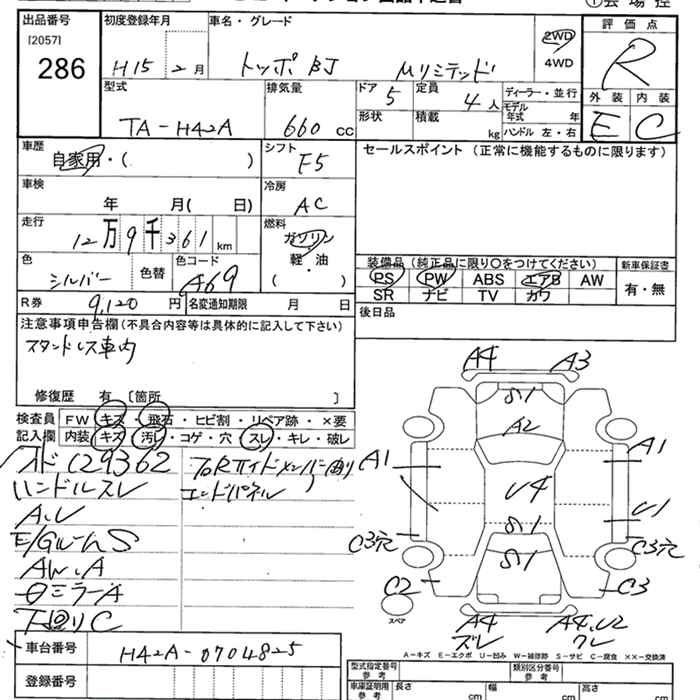 出品番号
[2057]
286
初度登録年月
H15 2月
車名・グレード
トッポBJ Mリミテッド
2WD
4WD
評価点
R
外装 内装
E C
型式
TA-H42A
排気量
660 CC
ドア
5
定員
4人
形状
積載
kg
ディーラー・並行
モデル
年式 年
ハンドル 左・右
車歴
自家用・( )
シフト
F5
セールスポイント (正常に機能するものに限ります)
車検
年 月( 日)
冷房
AC
走行
12万9千361km
燃料
ガソリン
軽・油
( )
色
シルバー
色替
色コード
A69
装備品 (純正品に限り○をつけてください)
PS PW ABS エアB AW
SR ナビ TV カワ
新車保証書
有・無
R券 9,120円
名変通知期限 月 日
後日品
注意事項申告欄(不具合内容等は具体的に記入して下さい)
スタンドレス車内
修復歴 有 〔箇所 〕
検査員
記入欄
FW キズ・飛石・ヒビ割・リペア跡・×要
内装 キズ・汚レ・コゲ・穴・スレ・キレ・破レ
129362
ハンドルスレ
エンドパネル
A.U
E/GルームS
AW.A
ミラーA
下回りC
A4 A3
S1
A2
A1 A1
U4
S1
U1
C3穴 C3穴
S1
C2 C3
スペア
A4 A4.U2
ズレ ワレ
A-キズ E-エクボ U-凹み W-補修跡 S-サビ C-腐食 ××-交換済
車台番号 H42A-0704825
登録番号
型式指定番号
参考
類別区分番号
参考
車庫証明用
参考
長さ cm
幅 cm
高さ cm